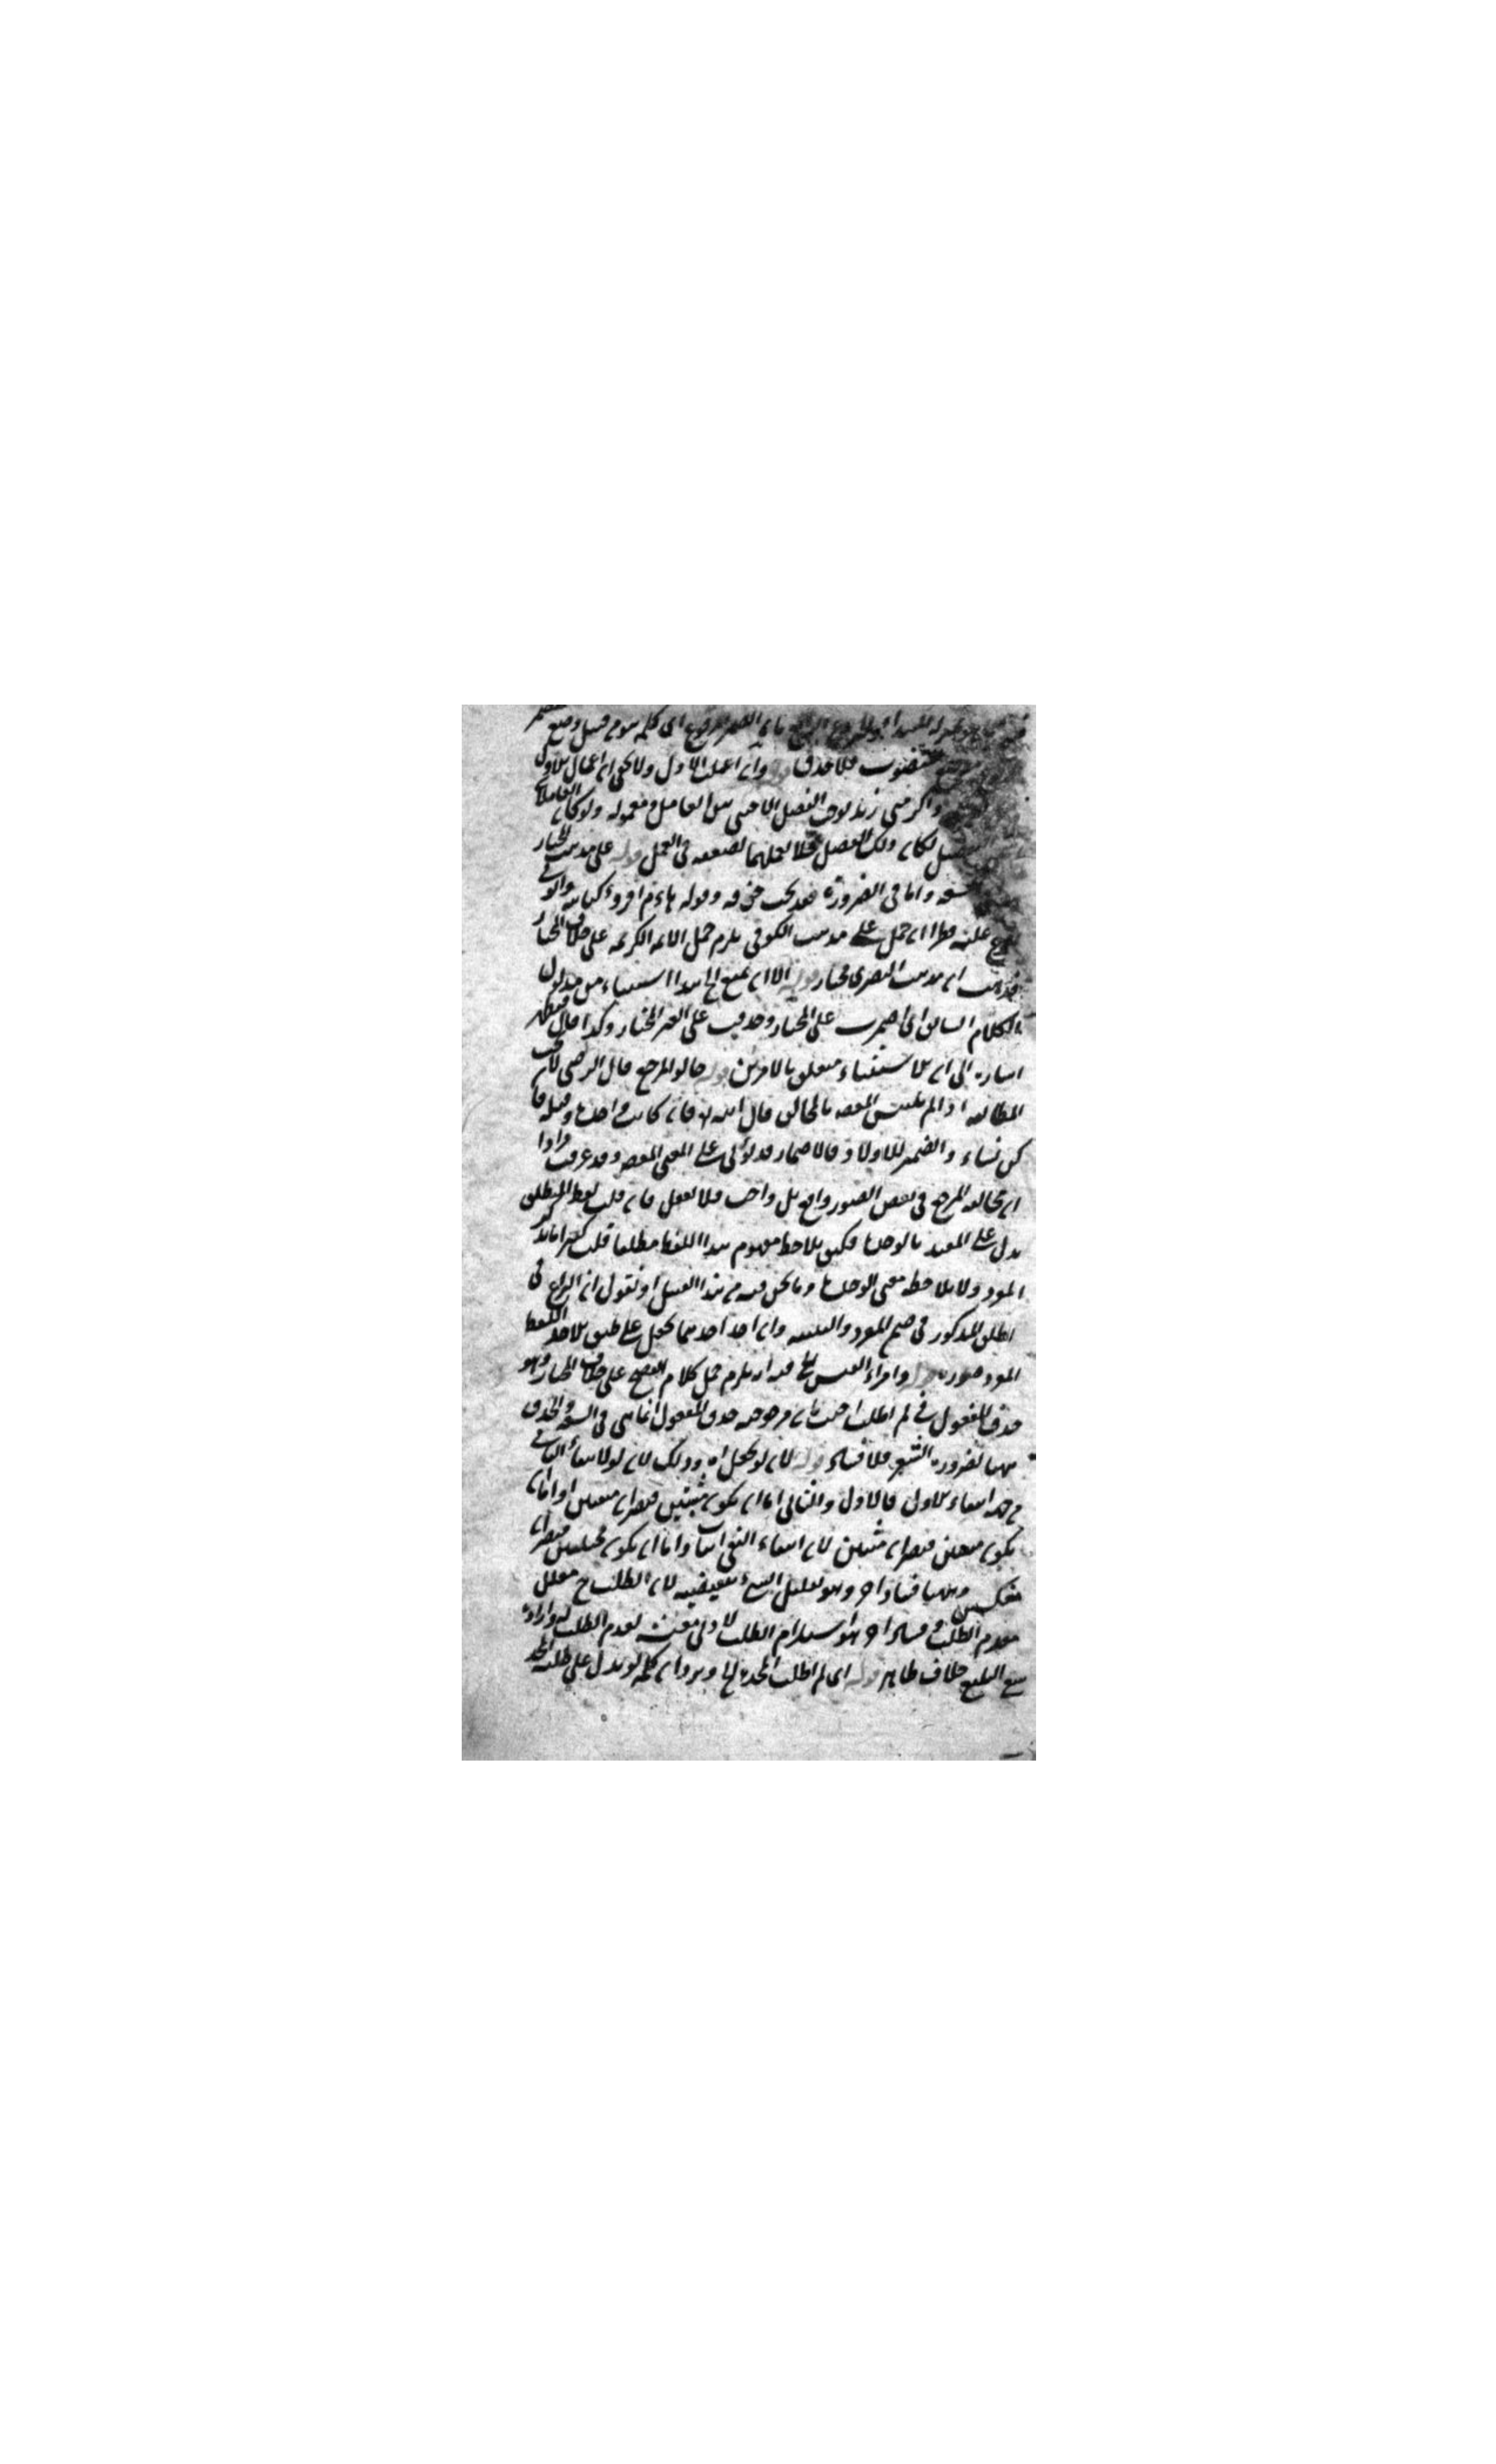 بان الضمير مرفوع اى كلمه سوى قبل وضع
منصوب فلا حذف قوله وان اعملت الاول ولا يخفى ان اعمال الاول
واكرمنى زيد يوجب الفصل الاجنبى بين العامل ومعموله ولو كان العاملان
لكان ذلك الفصل لعملهما لضعفه فى العمل قوله على مذهب المختار
واما فى الضرورة فقد يجب حذفه وقوله هاؤم اقرؤا كتابيه
حمل على مذهب الكوفى يلزم حمل الاية الكريمه على خلاف المختار
ان مذهب البصرى مختار قوله الا ان يمنع الخ هذا استثناء من مدلول
الكلام السابق اى اضمرت على المختار وحذفت على الغير المختار وكذا قال
اشارة الى ان الاستثناء متعلق بالامرين قوله خالف المرجع قال الرضى لا يجب
المطابقه اذا لم يلتبس المعنى بالمخالف قال الله تعالى فان كانت واحدة وقبله فان
كن نساء والضمير للاولاد فالاضمار قد يؤتى على المعنى المقصود وقد عرفت
ان مخالفه المرجع فى بعض الصور واقع بل واجب فلا تغفل فان قلت لفظ المنطلق
يدل على المقيد بالوحدة فكيف يلاحظ مفهوم هذا اللفظ مطلقا قلت كثيرا ما يذكر
المفرد ولا يلاحظ معنى الوحدة وما نحن فيه من هذا القبيل او نقول ان النزاع فى
انطلق المذكور فى ضمن المفرد والتثنيه وان احدهما يجعل على طبق اللفظ
المفرد صوره قوله وامرء القيس الخ فيه انه يلزم حمل كلام الفصيح على خلاف المختار وهو
حذف المفعول فى لم اطلب اجيب بان مرجوحيه حذف المفعول انما هى فى السعة والحذف
ههنا لضرورة الشعر فلا فساد قوله لان لو يجعل اه وذلك لان لو لانتفاء الثانى
من جهة انتفاء الاول فالاول والثانى اما ان يكون مثبتين فيصيران منفيين او اما ان
يكون منفيين فيصيران مثبتين لان انتفاء النفى اثبات واما ان يكون مختلفين فيصيران
منعكسين وههنا فساد اخر وهو تعليل الشئ بنقيضه لان الطلب ح معلل
بعدم الطلب وفساد اخر هو استلزام الطلب لادنى معيشه لعدم الطلب له وارادة
خلاف ظاهر قوله اى لم اطلب المجد الخ ويرد ان كلمه لو يدل على طلبه المجد